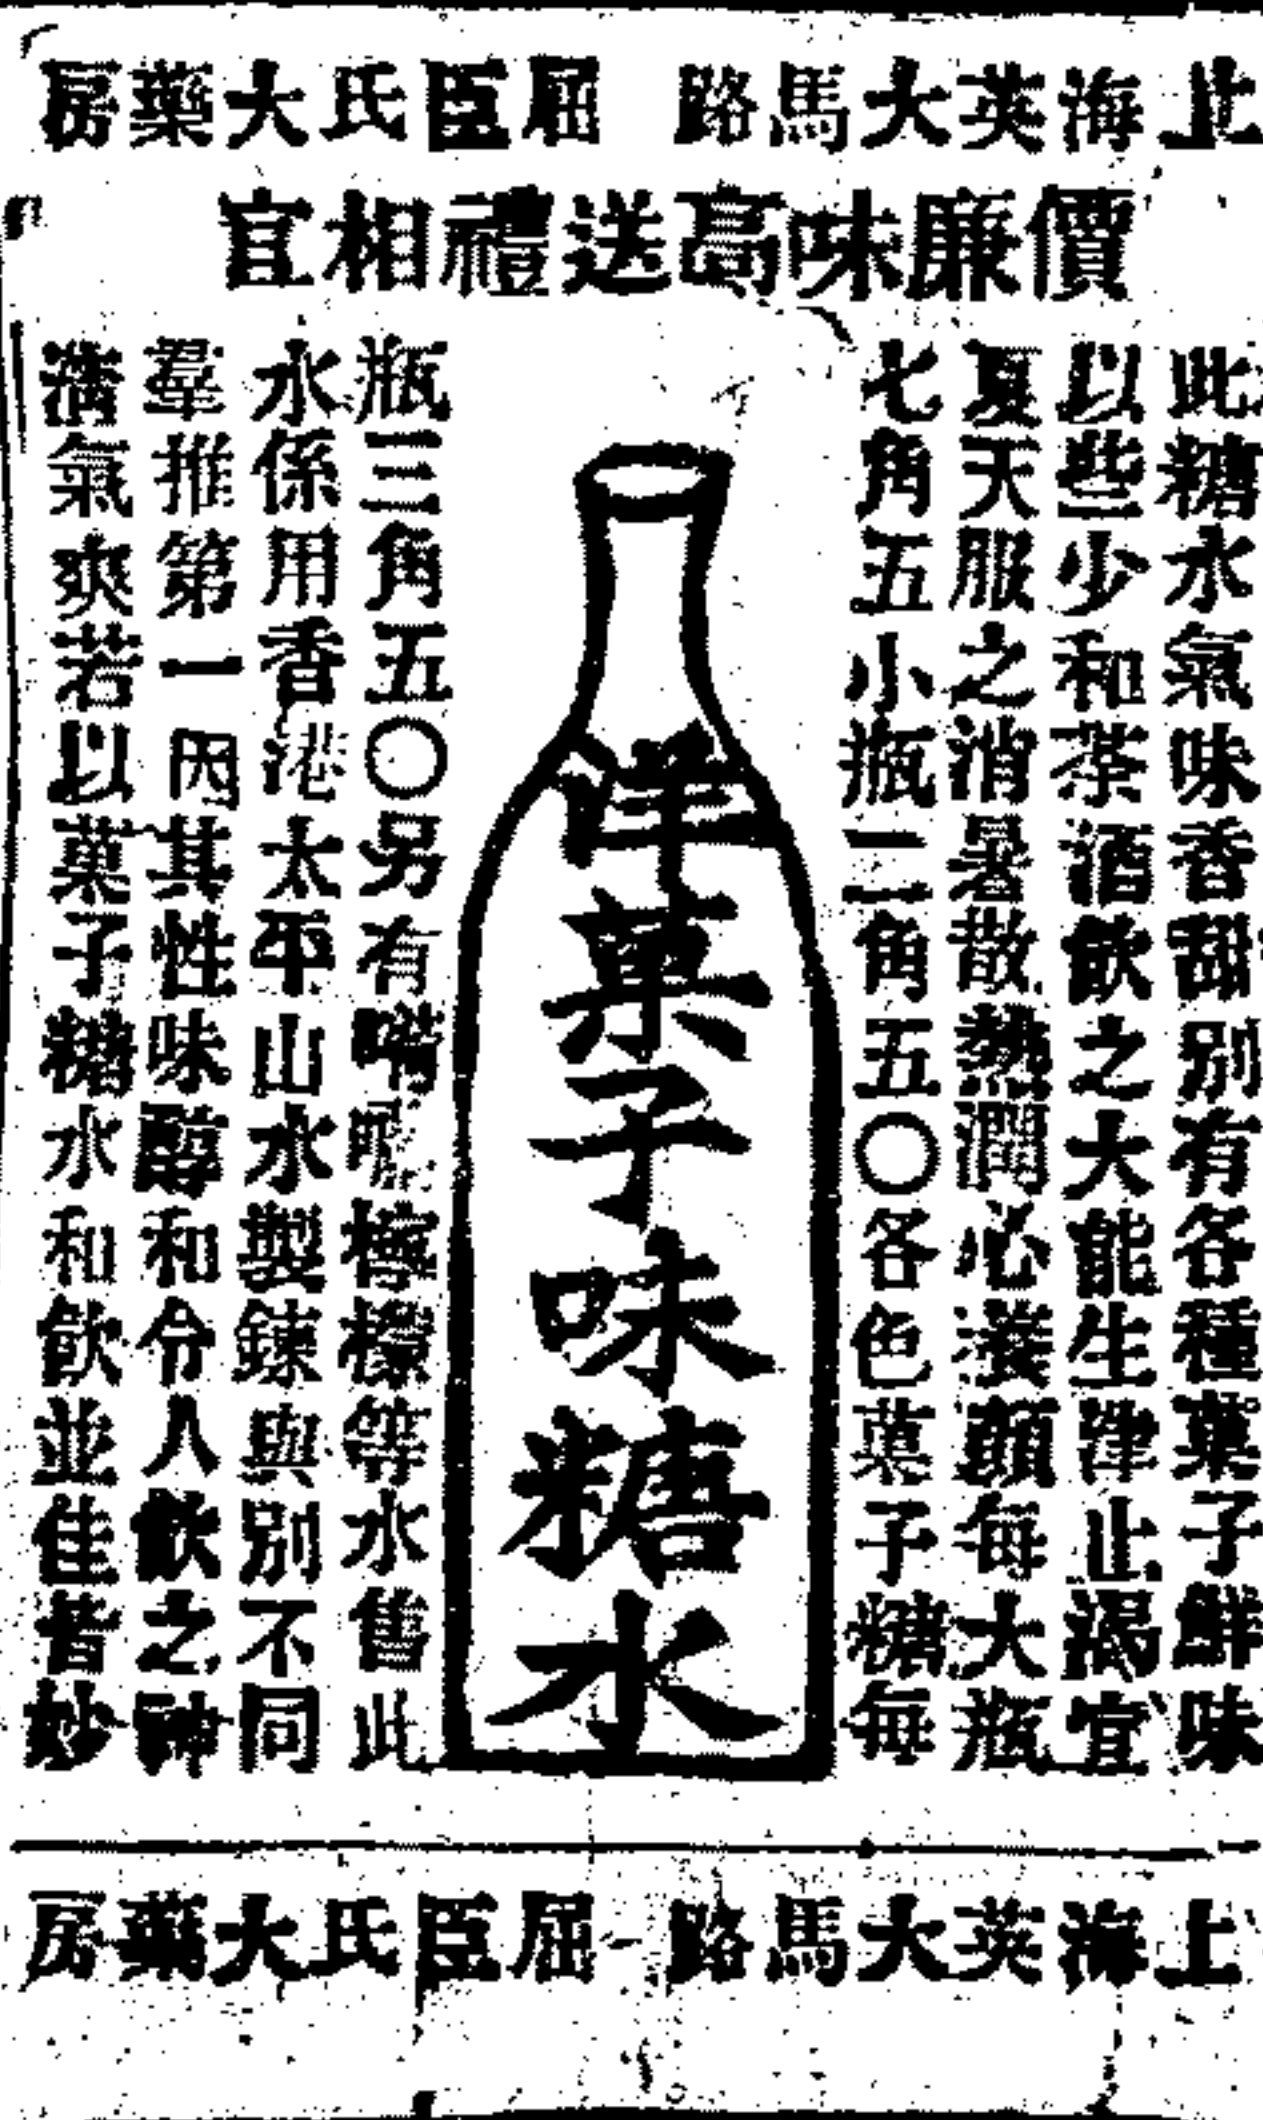 上海英大馬路 屈臣氏大藥房
價廉味高送禮相宜
此糖水氣味香甜別有各種菓子鮮味
以些少和茶酒飲之大能生津止渴宜
夏天服之消暑散熱潤心養顏每大瓶
七角五小瓶二角五〇各色菓子糖每
洋菓子味糖水
瓶三角五〇另有嗬囒檸檬等水售此
水係用香港太平山水製鍊與別不同
羣推第一因其性味醇和令人飲之神
清氣爽若以菓子糖水和飲並佳皆妙
上海英大馬路 屈臣氏大藥房